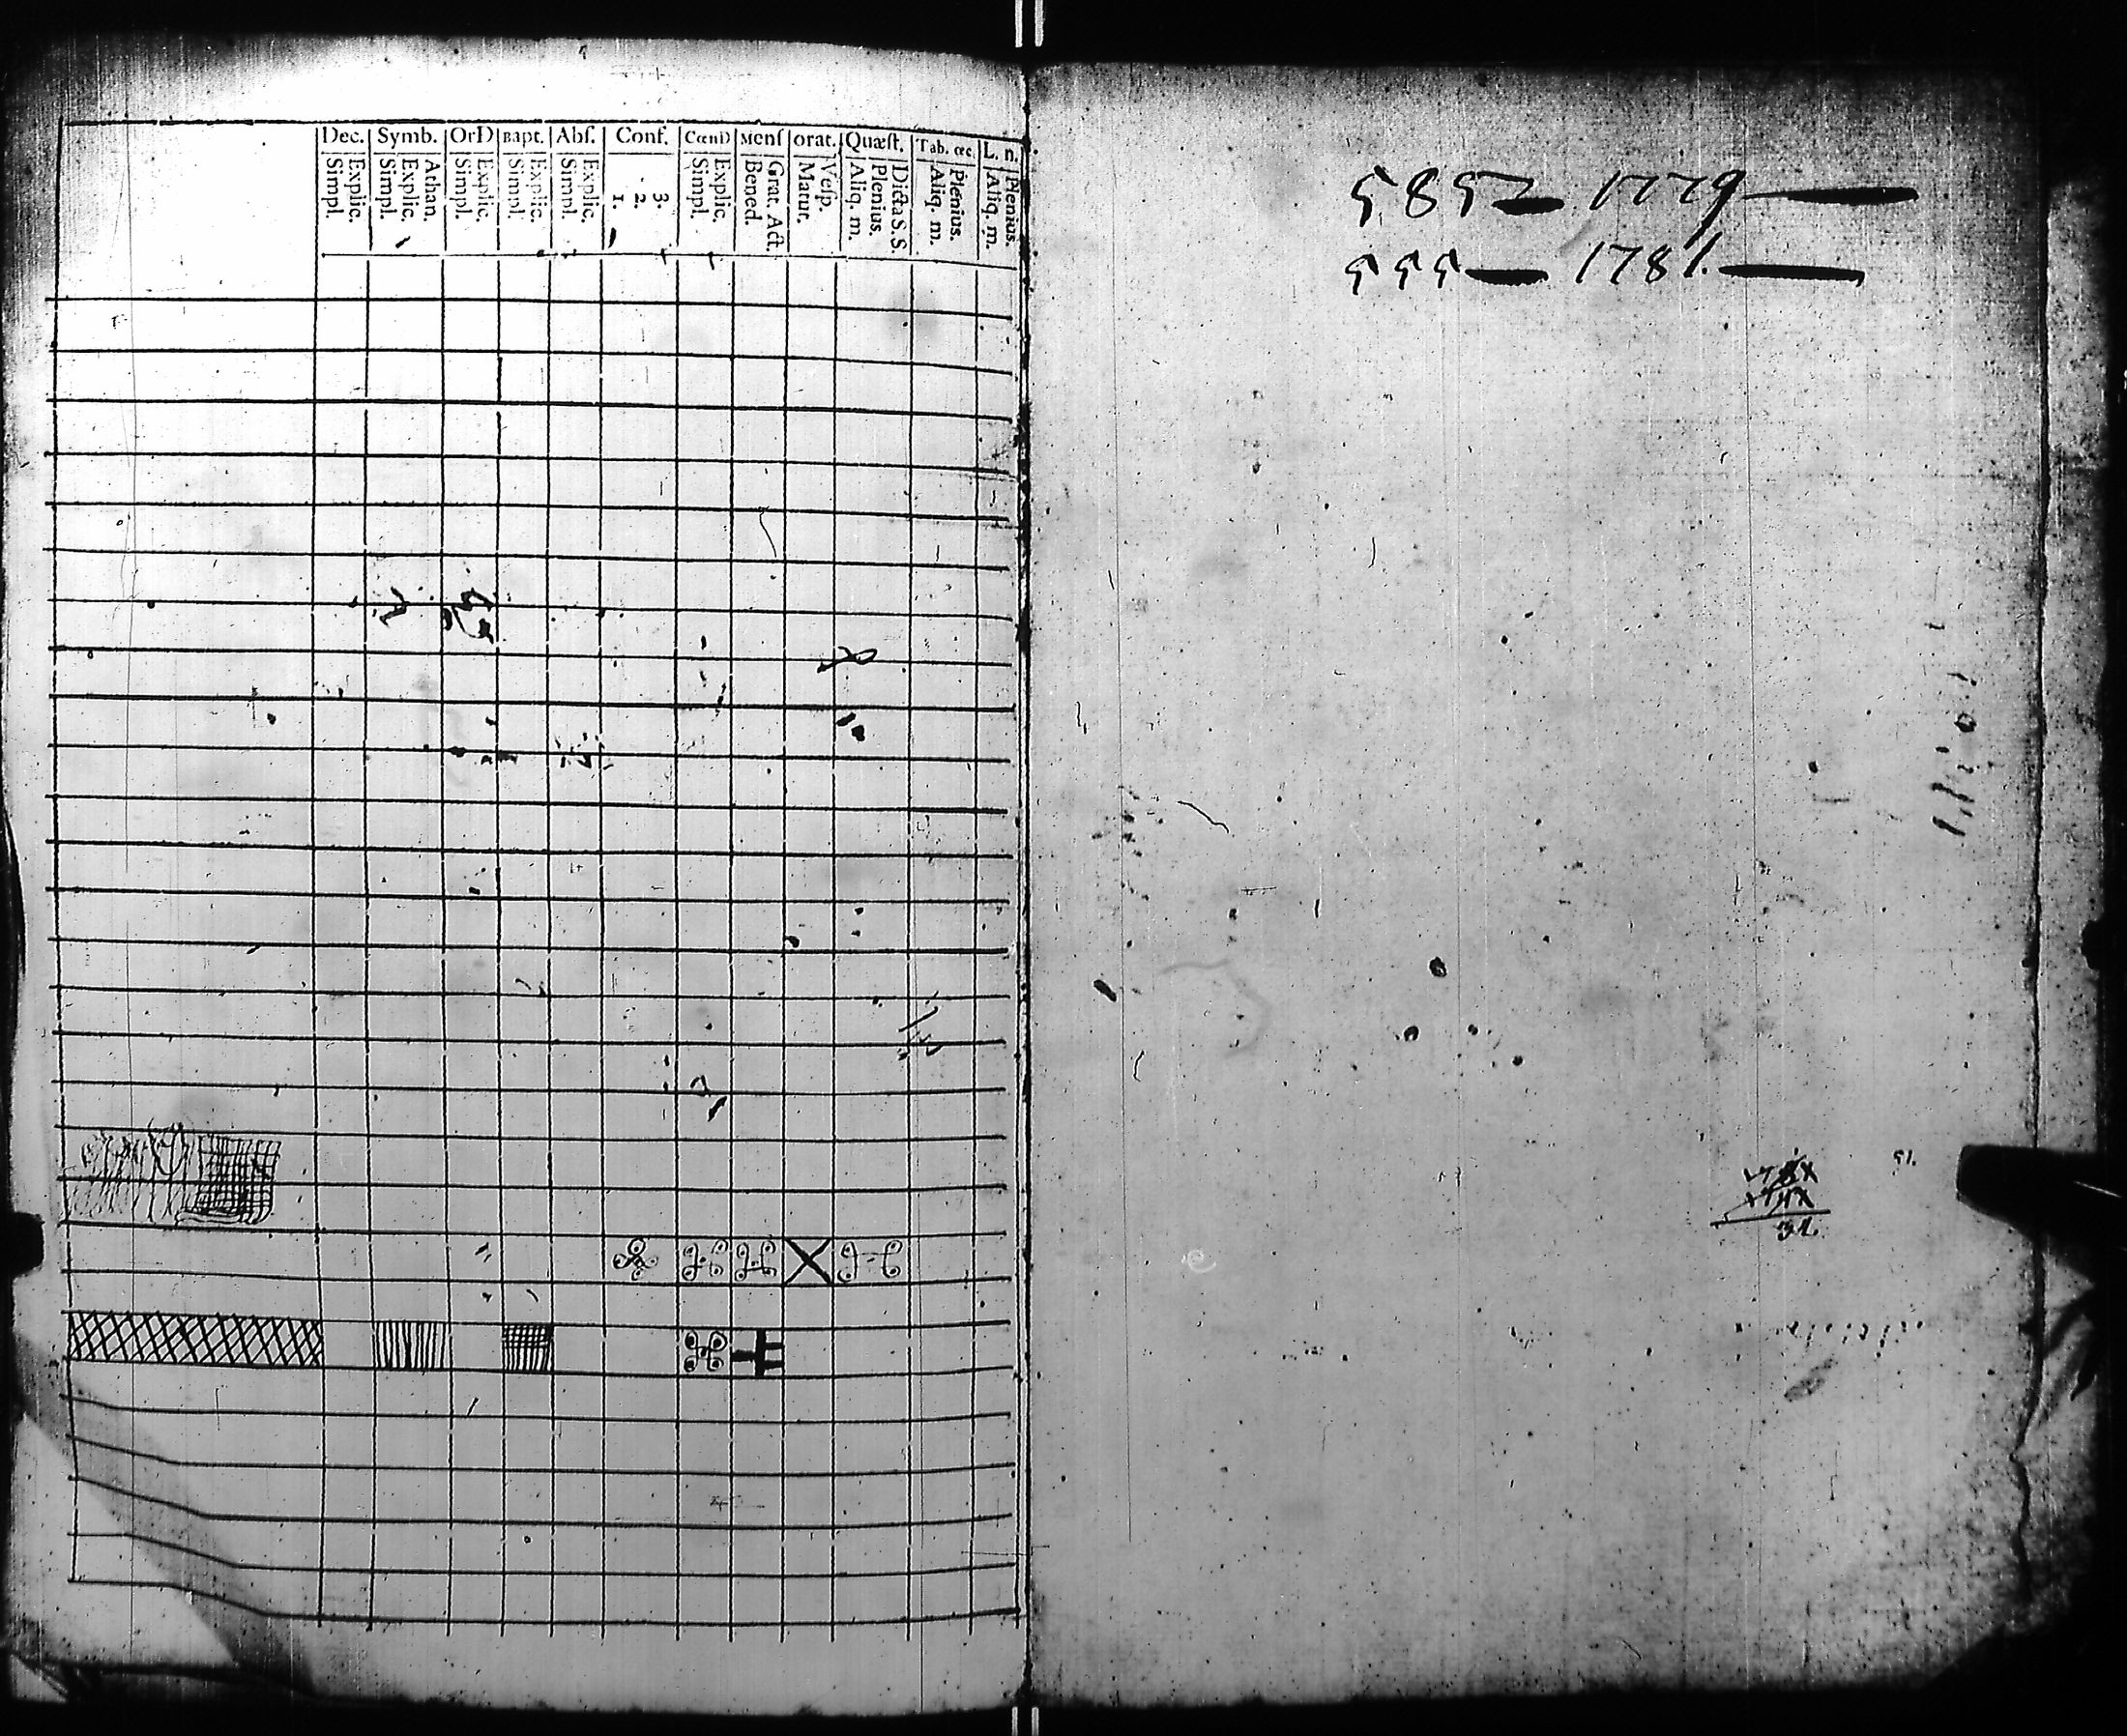 Dec. Symb. OrD Bapt. Abſ. Conf. CœnD Menſ orat. Quæſt. Tab. œc. L. n.
Explic. Athan. Explic. Explic. Explic. 3. Explic. Grat. Act. Veſp. Dicta S. S. Plenius. Plenius.
Simpl. Explic. Simpl. Simpl. Simpl. 2. Simpl. Bened. Matut. Plenius. Aliq. m. Aliq. m.
Simpl. 1. Aliq. m.
5852 — 1779 —
555 — 1781. —
51.